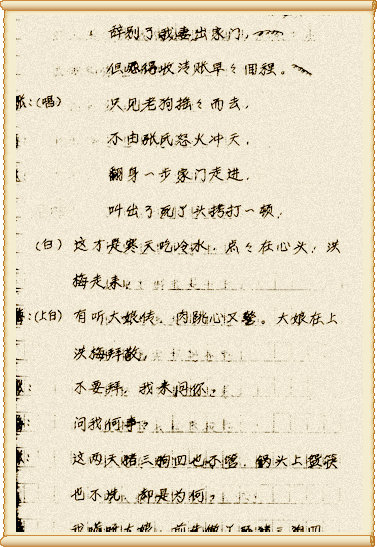 辞别了我妻出家门，
但愿得收清账早々回程。
张：(唱) 只见老狗摇々而去，
不由张氏怒火冲天，
翻身一步家门走进，
叫出了死丫头拷打一顿，
(白) 这才是寒天吃冷水，点々在心头，洪
梅走来。
(上白) 有听大娘传，肉跳心又惊。大娘在上
洪梅拜敬，
不要拜，我来问你。
问我何事。
张： 这两天猫三狗四也不喂，锅头上盌筷
也不洗，却是为何。